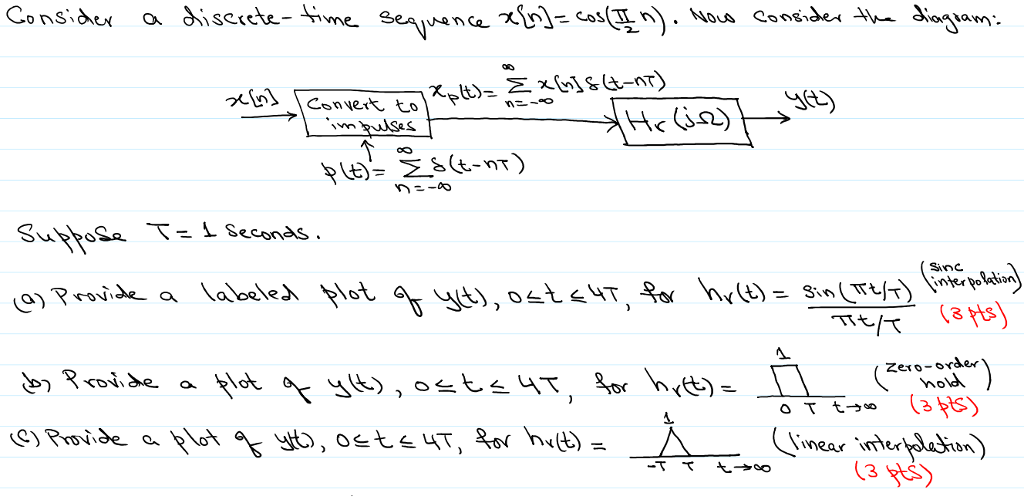 Consider a discrete-time sequence x[n] = cos(π/2 n). Now consider the diagram:
x[n] Convert to impulses x_p(t) = ∞ Σ n=-∞ x[n] δ(t-nT) Hr(jΩ) y(t)
p(t) = ∞ Σ n=-∞ δ(t-nT)
Suppose T = 1 seconds.
(a) Provide a labeled plot of y(t), 0≤t≤4T, for hr(t) = sin(πt/T) / πt/T (sinc interpolation) (3 pts)
(b) Provide a plot of y(t), 0≤t≤4T, for hr(t) = 1 0 T t→∞ (zero-order hold) (3 pts)
(c) Provide a plot of y(t), 0≤t≤4T, for hr(t) = 1 -T T t→∞ (linear interpolation) (3 pts)